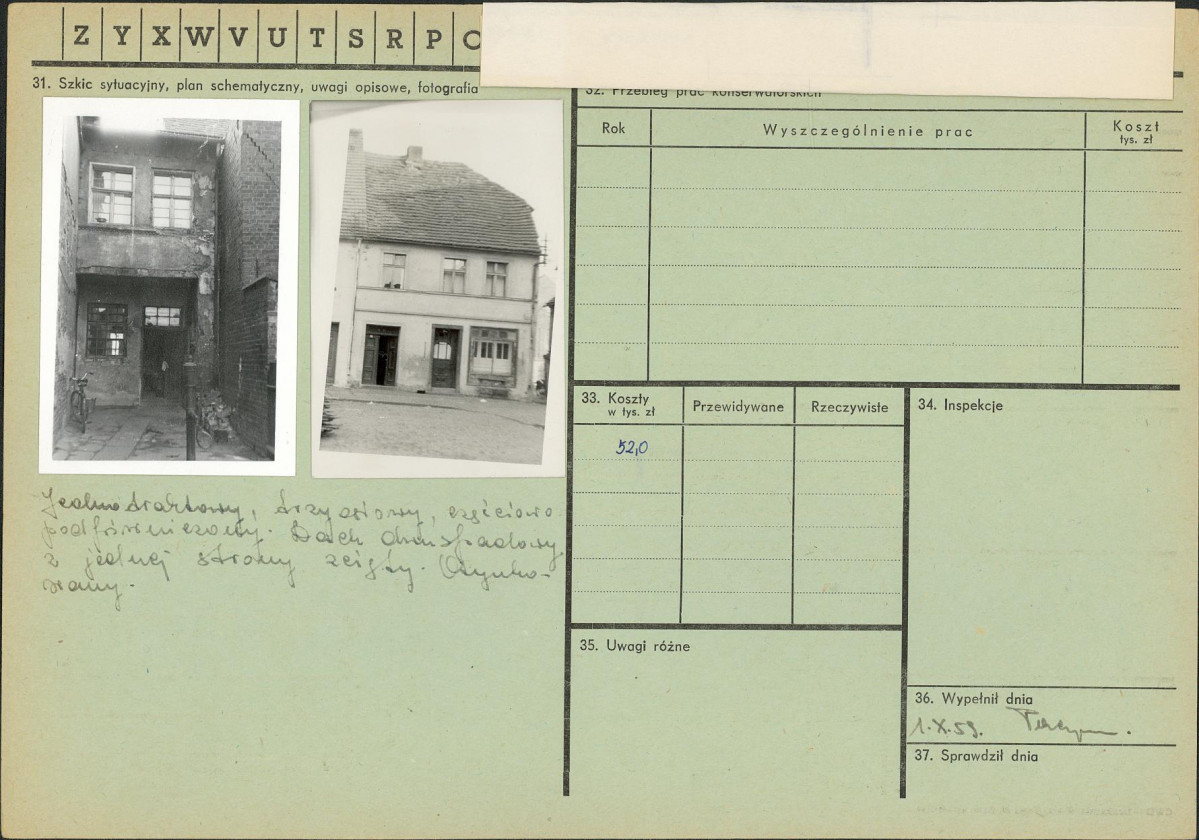 Z Y X W V U T S R P O
31. Szkic sytuacyjny, plan schematyczny, uwagi opisowe, fotografia
32. Przebieg prac konserwatorskich
Rok
Wyszczególnienie prac
Koszt
tys. zł
33. Koszty
w tys. zł
Przewidywane
Rzeczywiste
52,0
34. Inspekcje
Jednotraktowy, trzyosiowy, częściowo
podpiwniczony. Dach dwuspadowy
z jednej strony ścięty. Otynko-
wany.
35. Uwagi różne
36. Wypełnił dnia
1.X.59.
37. Sprawdził dnia